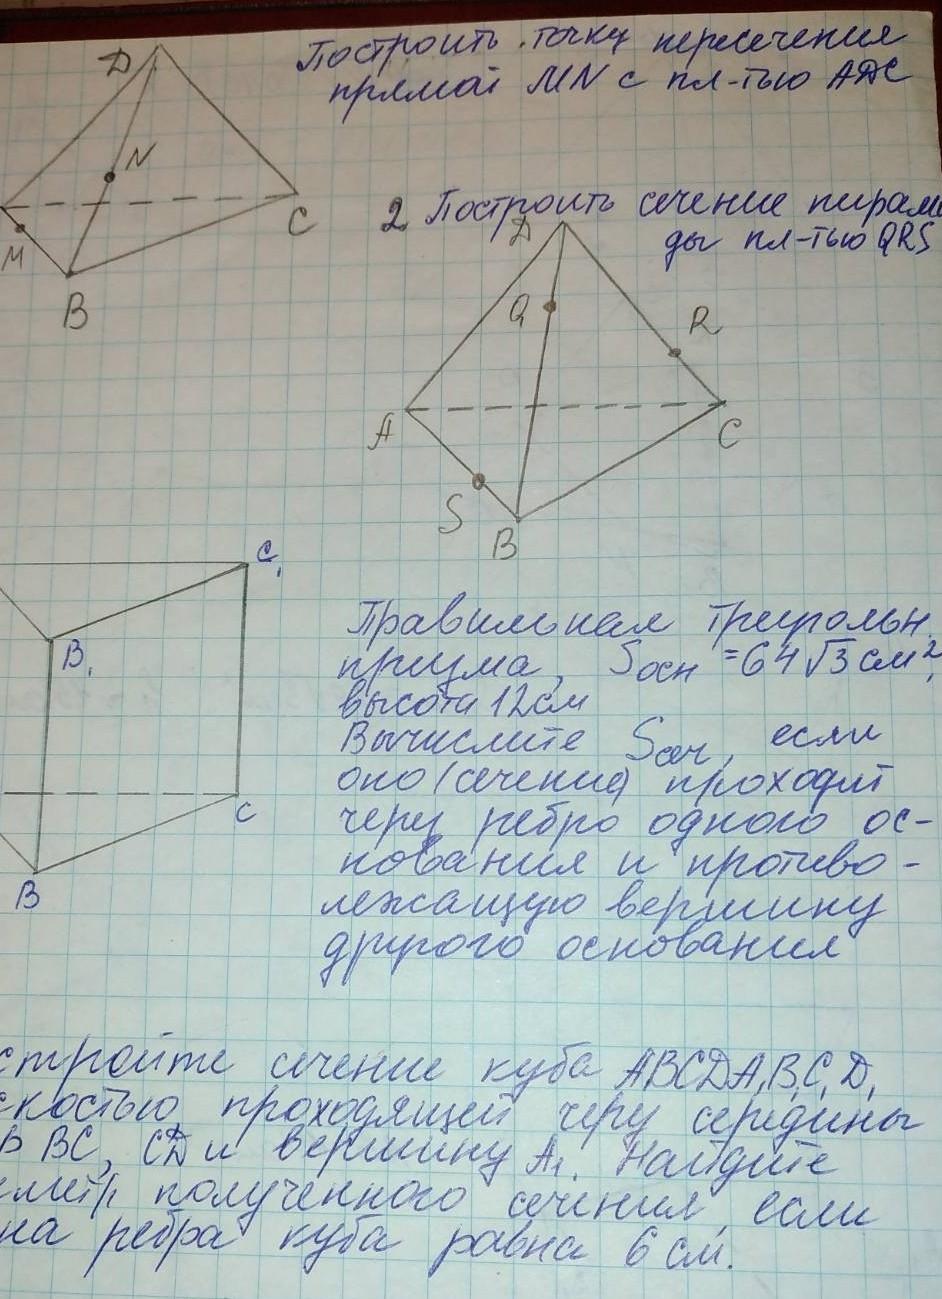 Построить точку пересечения
прямой MN с пл-тью ADC
D
N
C
M
B
2 Построить сечение пирами
ды пл-тью QRS
D
Q
R
A
C
S
B
C₁
B₁
C
B
Правильная треугольн.
призма, Sосн = 64√3 см²,
высота 12см
Вычислите Sсеч, если
оно (сечение) проходит
через ребро одного ос-
нования и противо-
лежащую вершину
другого основания
стройте сечение куба ABCDA₁B₁C₁D₁
скостью проходящей через середины
р BC, CD и вершину A₁. Найдите
метр полученного сечения, если
на ребра куба равна 6 см.